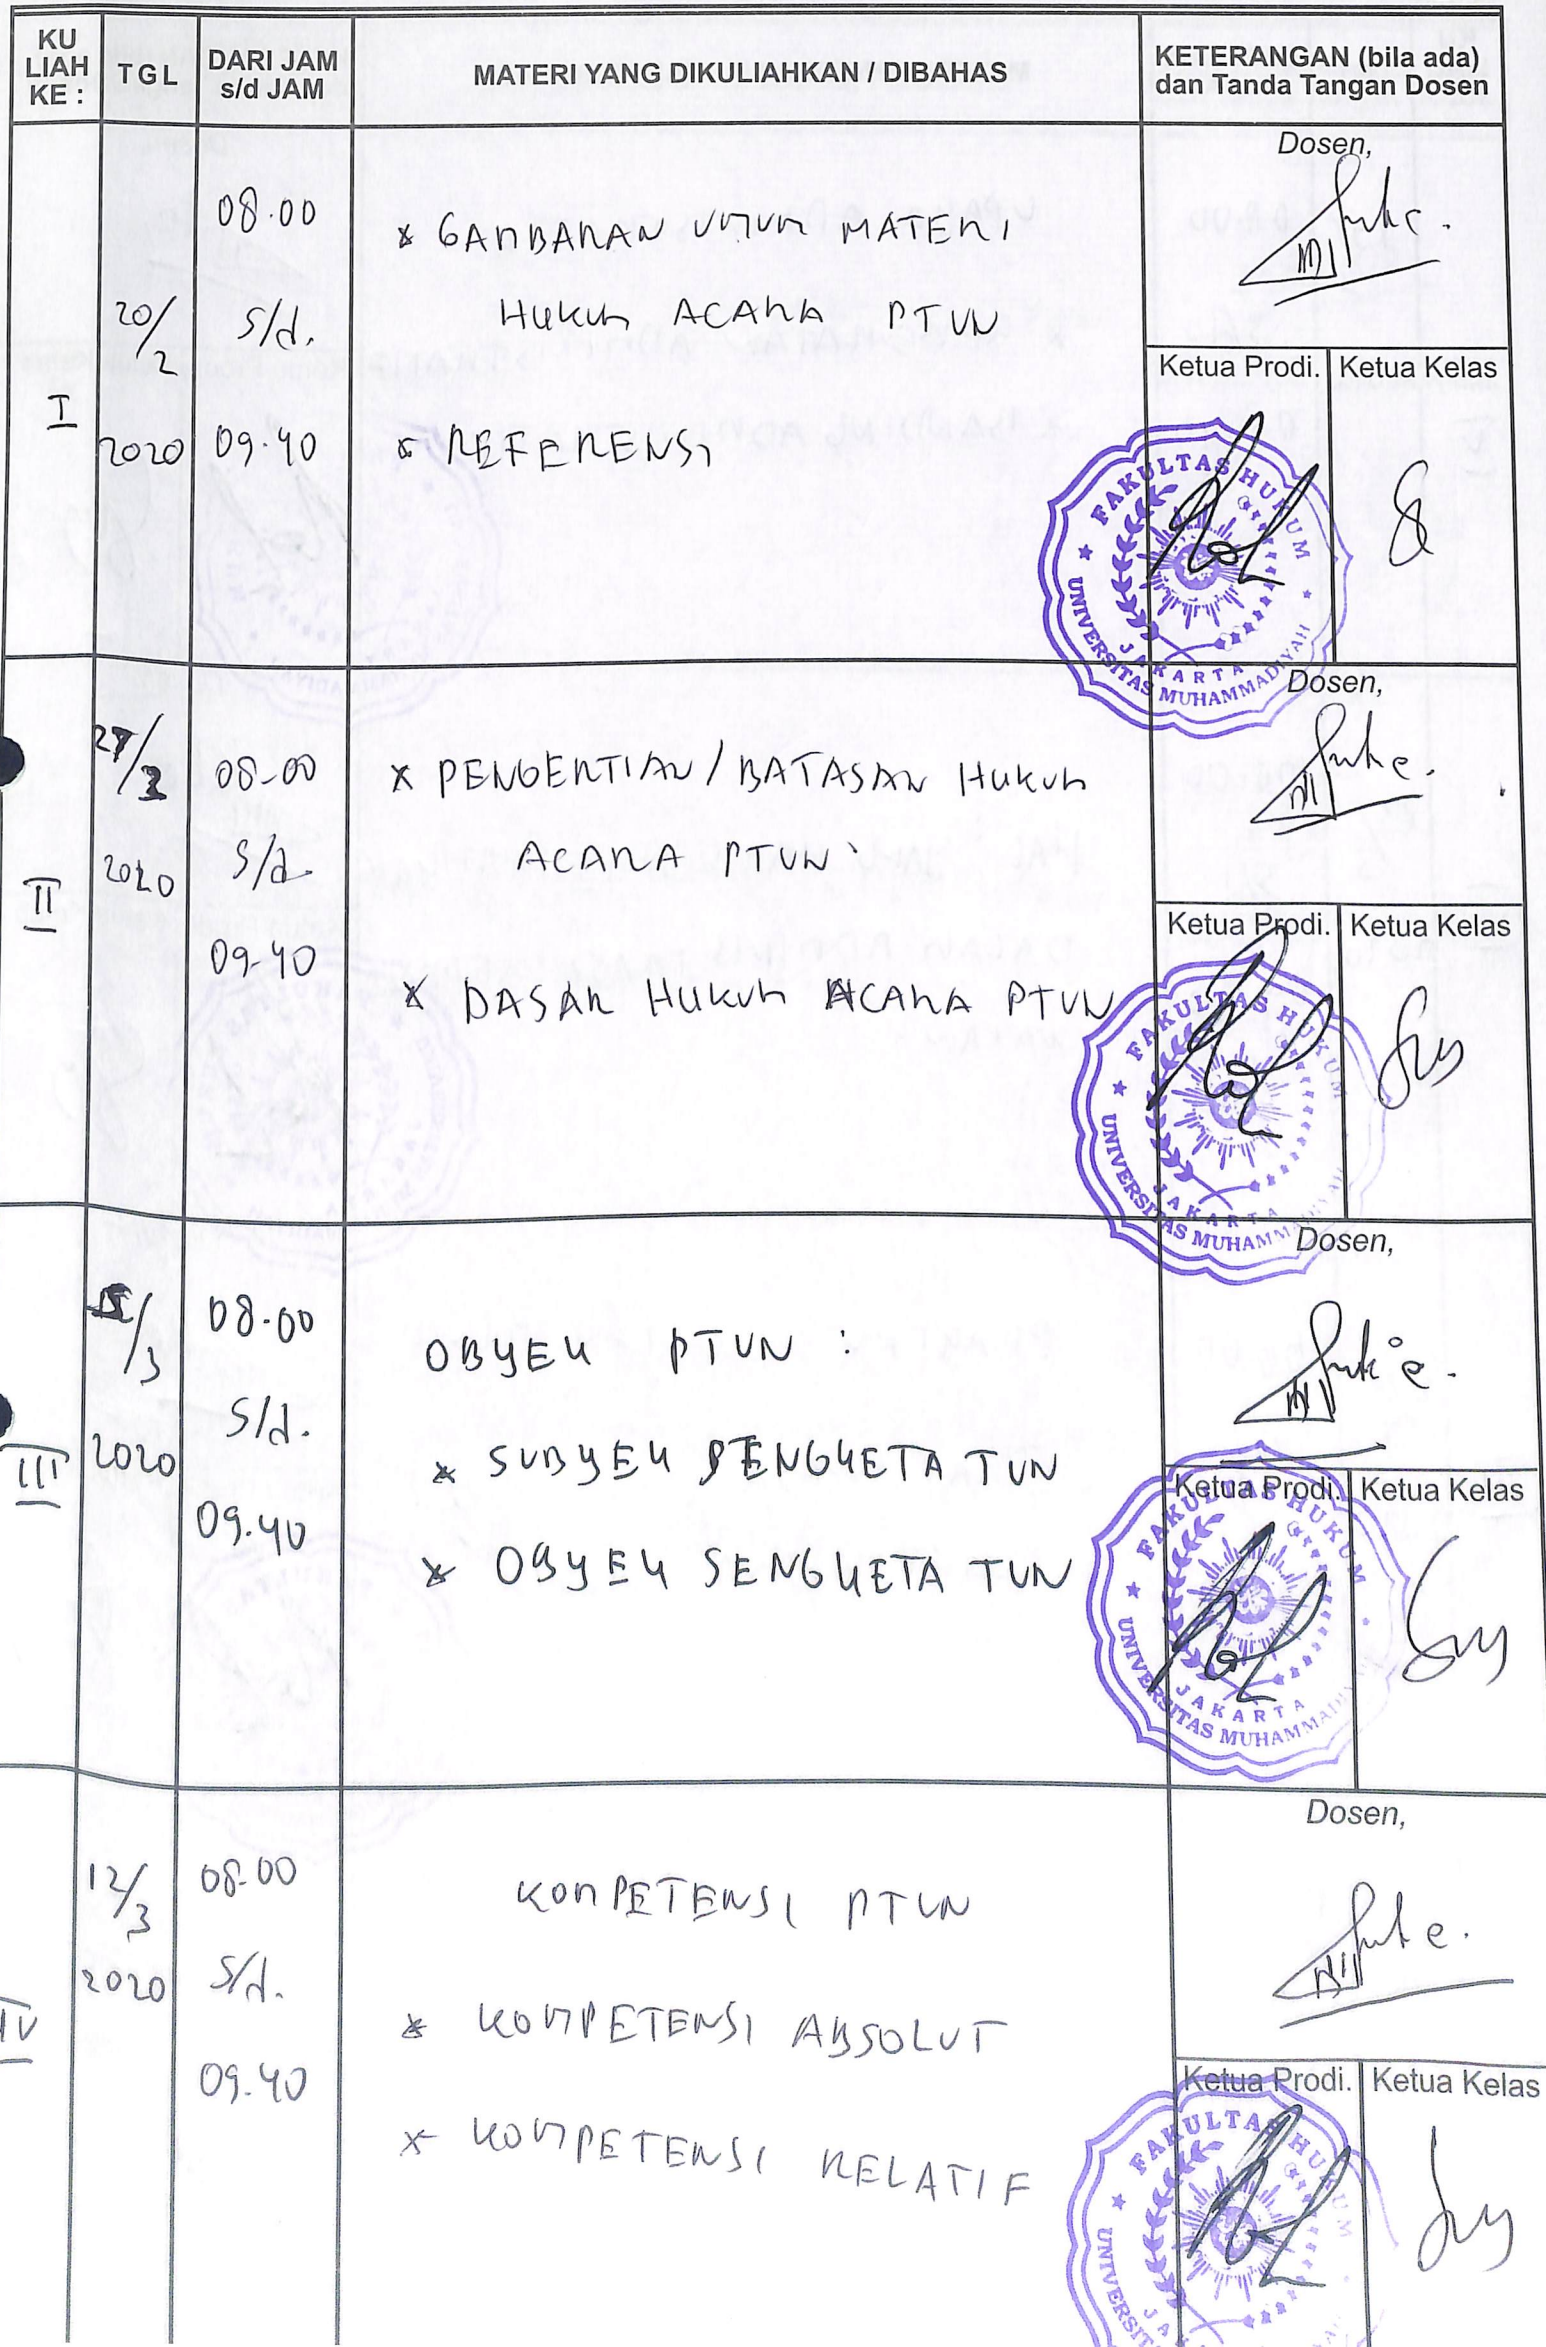 KU LIAH KE :
TGL
DARI JAM s/d JAM
MATERI YANG DIKULIAHKAN / DIBAHAS
KETERANGAN (bila ada) dan Tanda Tangan Dosen
I
20/2
2020
08.00
s/d.
09.40
* GAMBARAN UMUM MATERI
HUKUM ACARA PTUN
* REFERENSI
Dosen,
Ketua Prodi.
Ketua Kelas
FAKULTAS HUKUM
UNIVERSITAS MUHAMMADIYAH
JAKARTA
II
27/2
2020
08-00
s/d.
09-40
* PENGERTIAN/BATASAN HUKUM
ACARA PTUN
* DASAR HUKUM ACARA PTUN
Dosen,
Ketua Prodi.
Ketua Kelas
FAKULTAS HUKUM
UNIVERSITAS MUHAMMADIYAH
JAKARTA
III
/3
2020
08.00
s/d.
09.40
OBYEK PTUN :
* SUBYEK SENGKETA TUN
* OBYEK SENGKETA TUN
Dosen,
Ketua Prodi.
Ketua Kelas
FAKULTAS HUKUM
UNIVERSITAS MUHAMMADIYAH
JAKARTA
IV
12/3
2020
08-00
s/d.
09.40
KOMPETENSI PTUN
* KOMPETENSI ABSOLUT
* KOMPETENSI RELATIF
Dosen,
Ketua Prodi.
Ketua Kelas
FAKULTAS HUKUM